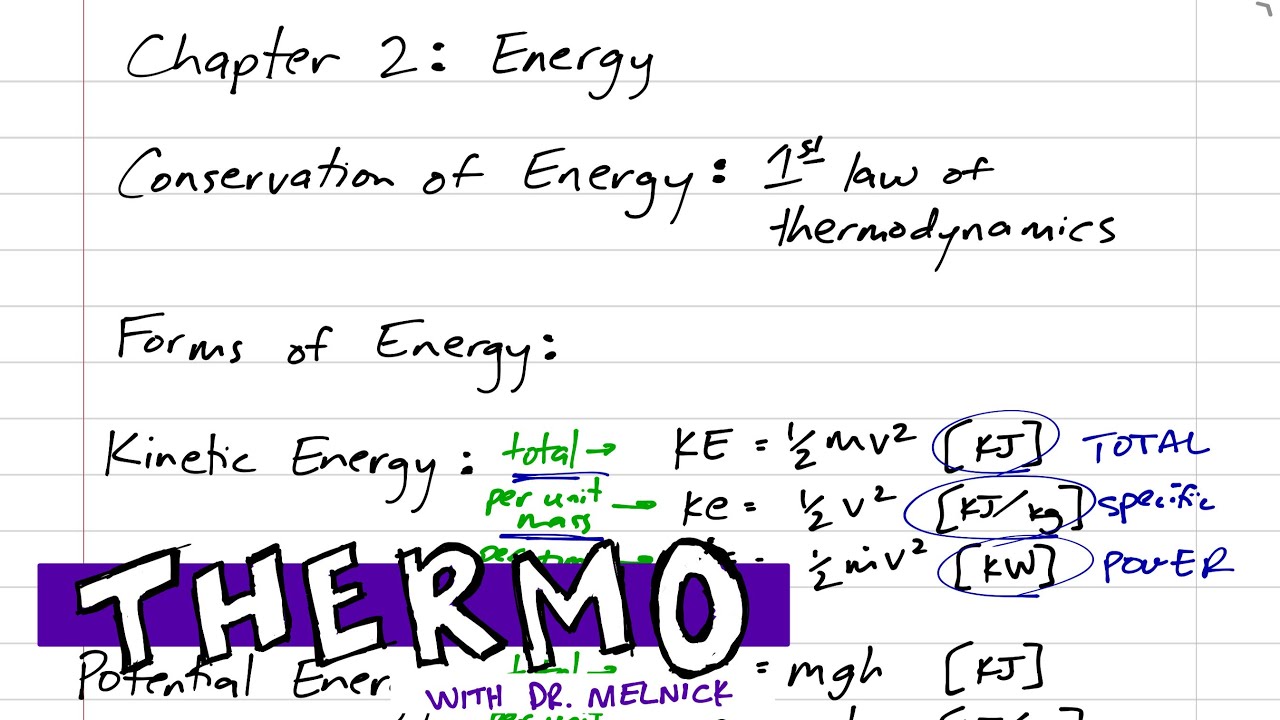 Chapter 2: Energy
Conservation of Energy: 1st law of
thermodynamics
Forms of Energy:
Kinetic Energy: total → KE = ½ mv² [KJ] TOTAL
per unit mass → ke = ½ v² [KJ/kg] specific
= ½ ṁv² [KW] POWER
THERMO
Potential Ener total → = mgh [KJ]
WITH DR. MELNICK
per unit